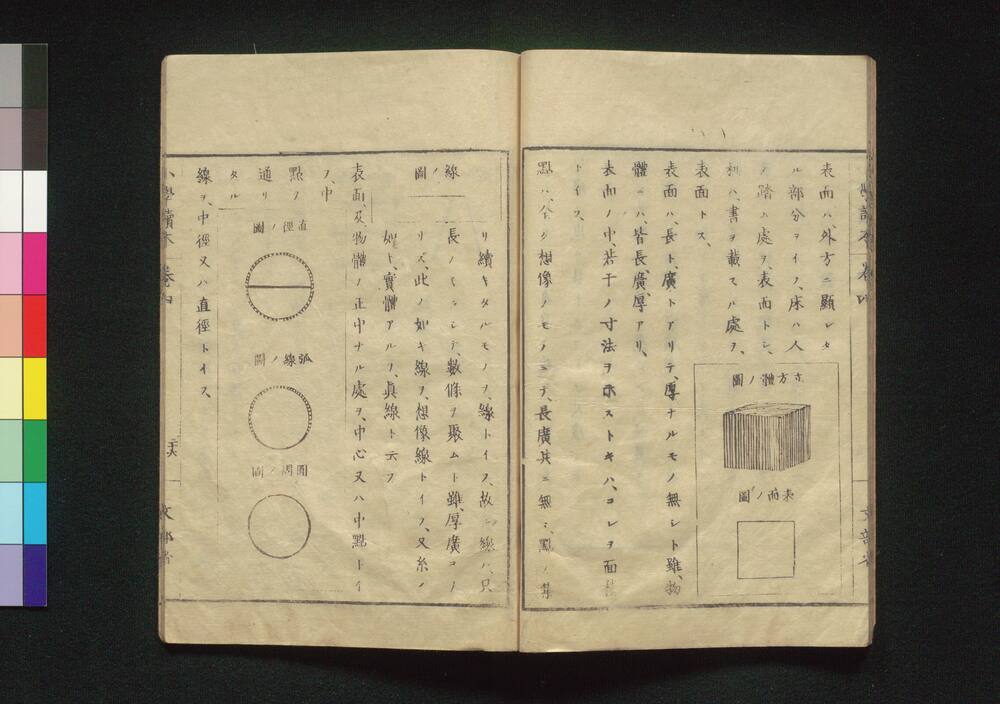 表面ハ、外方ニ顯レタ
ル部分ヲイフ、床ハ人
ノ踏ム處ヲ、表面トシ、
机ハ、書ヲ載スル處ヲ、
表面トス、
立方體ノ圖
表面ノ圖
表面ハ、長ト廣トアリテ、厚ナルモノ無シト雖、物
體ニハ、皆長、廣、厚アリ、
表面ノ中、若干ノ寸法ヲ示ストキハ、コレヲ面積
トイフ、
點ハ、全ク想像ノモノニテ、長廣其ニ無シ、點ノ集
リ續キタルモノヲ、線トイフ、故ニ線ハ、只
長ノミニシテ、數條ヲ聚ムト雖、厚廣コノ
リズ、此ノ如キ線ヲ、想像線トイフ、又糸ノ
如ト、實體アルヲ、眞線ト云フ
線ノ圖
表面、及物體ノ正中ナル處ヲ、中心又ハ中點トイ
フ、中
點ヲ
通リ
タル
直徑ノ圖
弧線ノ圖
圓周ノ圖
線ヲ、中徑又ハ直徑トイフ、
小學讀本 卷四
二十六
文部省